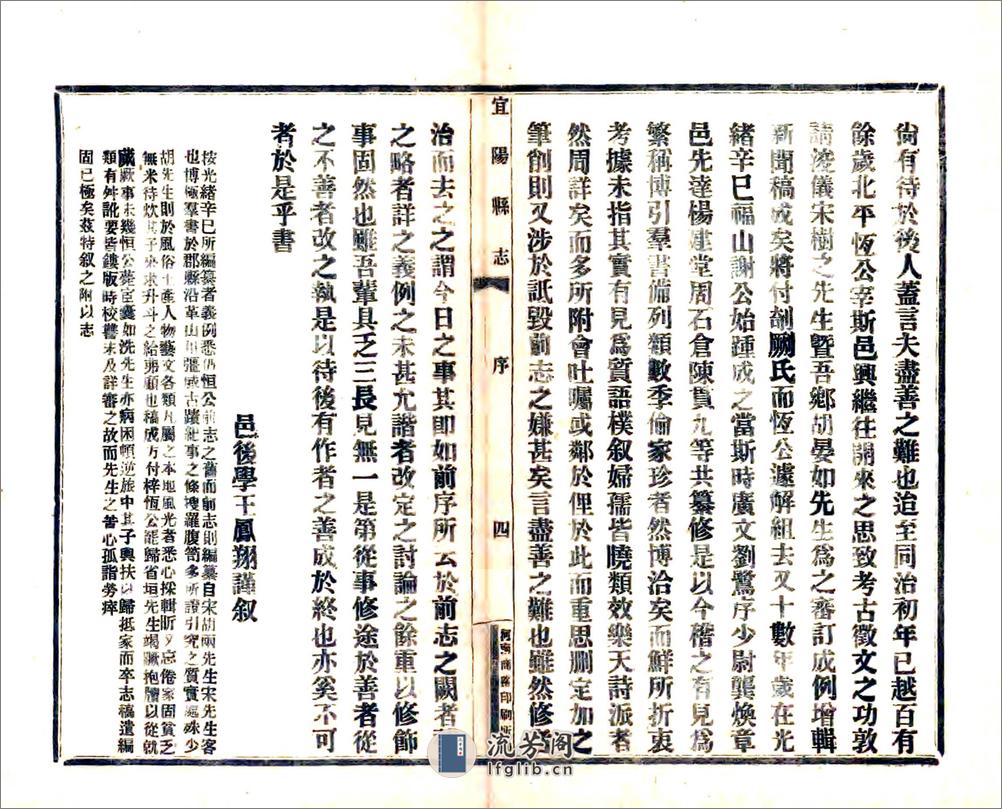 尙有待於後人蓋言夫盡善之難也迨至同治初年已越百有
餘歲北平恆公宰斯邑興繼往開來之思致考古徵文之功敦
請浚儀宋樹之先生暨吾鄉胡晏如先生爲之審訂成例增輯
新聞稿成矣將付剞劂氏而恆公遽解組去又十數年歲在光
緒辛巳福山謝公始踵成之當斯時廣文劉鷺序少尉龔煥章
邑先達楊建堂周石倉陳貫九等共纂修是以今稽之有見爲
繁稱博引羣書備列類數季倫家珍者然博洽矣而鮮所折衷
考據未指其實有見爲質語樸叙婦孺皆曉類效樂天詩派者
然周詳矣而多所附會吐囑或鄰於俚於此而重思刪定加之
筆削則又涉於詆毀前志之嫌甚矣言盡善之難也雖然修
宜陽縣志
序
四
河南商務印刷所
治而去之之謂今日之事其即如前序所云於前志之闕者
之略者詳之義例之未甚允諧者改定之討論之餘重以修飾
事固然也雖吾輩具乏三長見無一是第從事修途於善者從
之不善者改之執是以待後有作者之善成於終也亦奚不可
者於是乎書
邑後學王鳳翔謹叙
按光緒辛巳所編纂者義例悉仍恒公前志之舊而前志則編纂自宋胡兩先生宋先生客
也博極羣書於郡縣沿革山川疆域古蹟紀事之條搜羅腹笥多所證引究之質實處殊少
胡先生則於風俗土產人物藝文各類凡屬之本地風光者悉心採輯昕夕忘倦家固貧乏
無米待炊其子來求升斗之給弗顧也稿成方付梓恆公罷歸省垣先生竭蹶抱牘以從就
厥事未幾恒公薨宦囊如洗先生亦病困頓逆旅中其子輿扶以歸抵家而卒志稿遺編
類有舛訛要皆鏤版時校讐未及詳審之故而先生之苦心孤詣勞瘁
固已極矣茲特叙之附以志
流芳阁
lfglib.cn